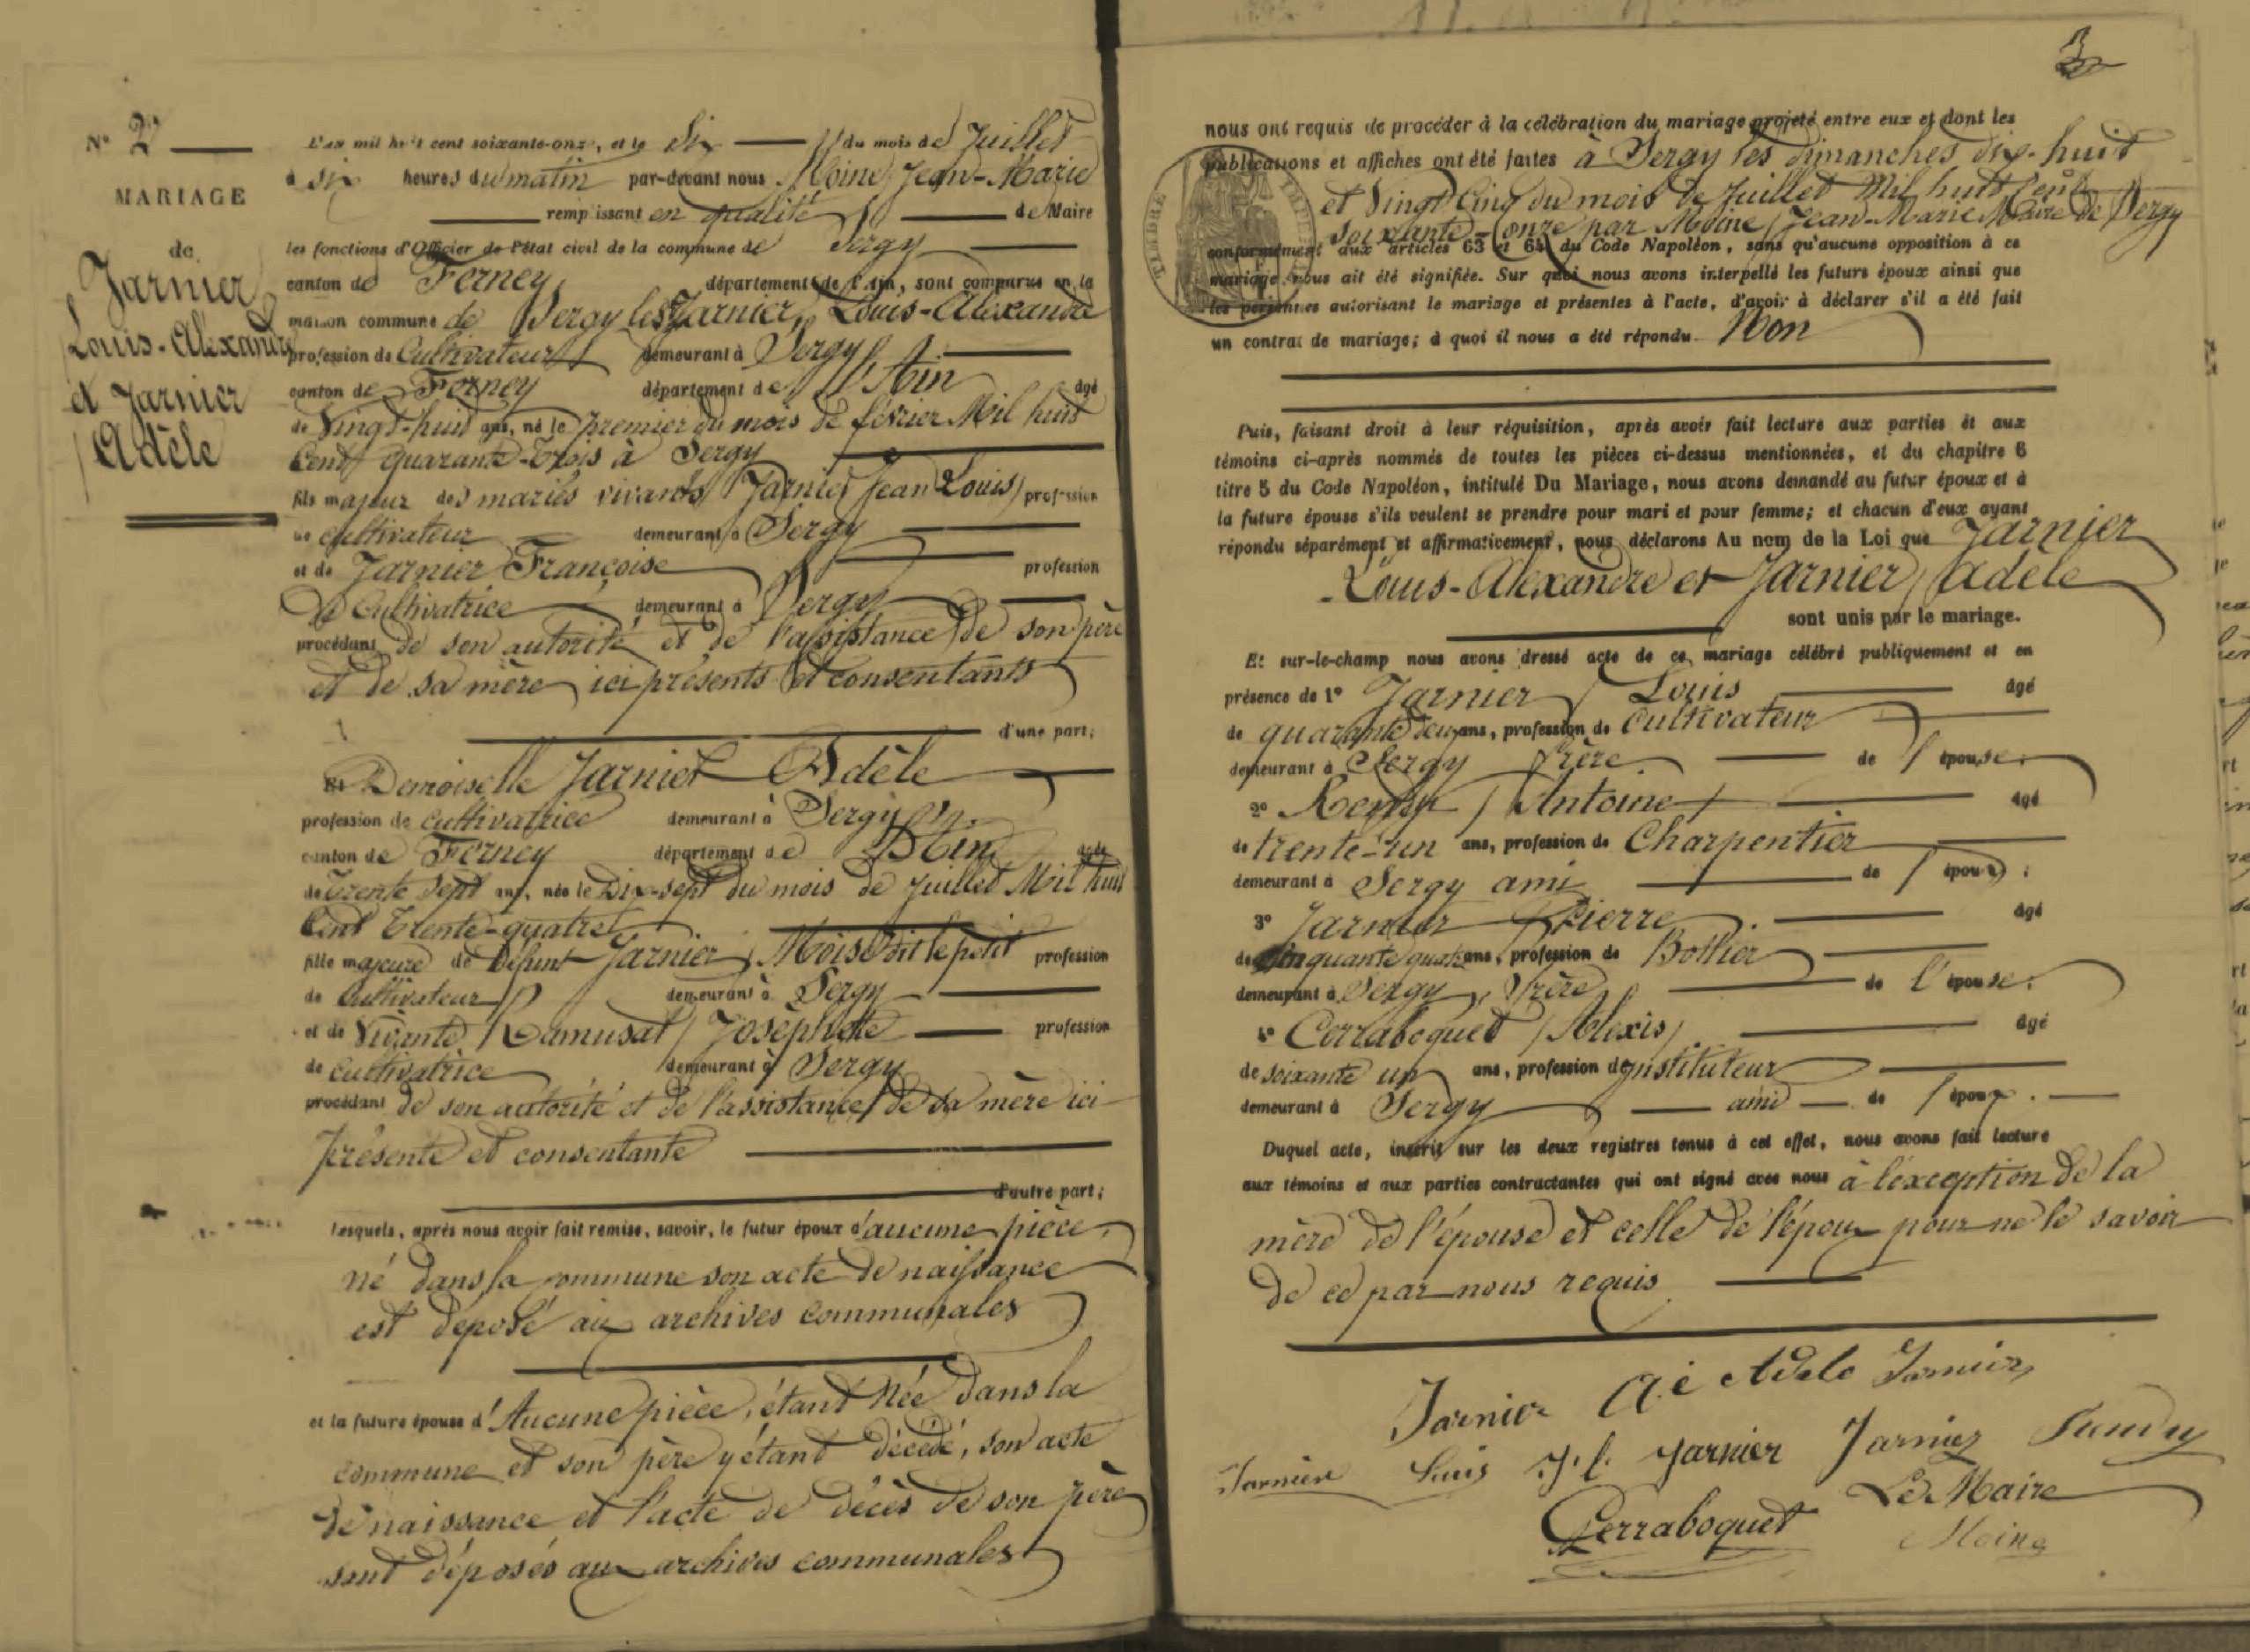 3
N° 2
MARIAGE
de
Jarnier
Louis-Alexandre
et Jarnier
Adèle
L'an mil huit cent soixante-onze, et le Six du mois de Juillet
à six heures du matin par-devant nous Moine Jean-Marie
remplissant en qualité de Maire
les fonctions d'Officier de l'état civil de la commune de Sergy
canton de Ferney département de l'Ain, sont comparus en la
maison commune de Sergy les Jarnier, Louis-Alexandre
profession de Cultivateur demeurant à Sergy
canton de Ferney département de l'Ain âgé
de Vingt-huit ans, né le premier du mois de février Mil huit
Cent quarante-trois à Sergy
fils majeur des mariés vivants Jarnier Jean Louis profession
de cultivateur demeurant à Sergy
et de Jarnier Françoise profession
de Cultivatrice demeurant à Sergy
procédant de son autorité et de l'assistance de son père
et de sa mère ici présents et consentants
d'une part;
Et Demoiselle Jarnier Adèle
profession de cultivatrice demeurant à Sergy
canton de Ferney département de l'Ain âgée
de Trente Sept ans, née le Dix-sept du mois de Juillet Mil huit
Cent Trente-quatre
fille majeure de Défunt Jarnier Moise dit le petit profession
de Cultivateur demeurant à Sergy
et de Vivante Ramusat Josephette profession
de cultivatrice demeurant à Sergy
procédant de son autorité et de l'assistance de sa mère ici
Présente et consentante
d'autre part;
Lesquels, après nous avoir fait remise, savoir, le futur époux d'aucune pièce
né dans la commune son acte de naissance
est déposé aux archives communales
et la future épouse d'Aucune pièce, étant Née dans la
commune et son père y étant décédé, son acte
de naissance et l'acte de décès de son père
sont déposés aux archives communales
nous ont requis de procéder à la célébration du mariage projeté entre eux et dont les
publications et affiches ont été faites à Sergy les dimanches dix-huit
et Vingt Cinq du mois de Juillet Mil huit Cent
soixante-onze par Moine Jean-Marie Maire de Sergy
conformément aux articles 63 et 64 du Code Napoléon, sans qu'aucune opposition à ce
mariage nous ait été signifiée. Sur quoi nous avons interpellé les futurs époux ainsi que
les personnes autorisant le mariage et présentes à l'acte, d'avoir à déclarer s'il a été fait
un contrat de mariage; à quoi il nous a été répondu Non
TIMBRE IMPÉRIAL
Puis, faisant droit à leur réquisition, après avoir fait lecture aux parties et aux
témoins ci-après nommés de toutes les pièces ci-dessus mentionnées, et du chapitre 6
titre 5 du Code Napoléon, intitulé Du Mariage, nous avons demandé au futur époux et à
la future épouse s'ils veulent se prendre pour mari et pour femme; et chacun d'eux ayant
répondu séparément et affirmativement, nous déclarons Au nom de la Loi que Jarnier
Louis-Alexandre et Jarnier Adèle
sont unis par le mariage.
Et sur-le-champ nous avons dressé acte de ce mariage célébré publiquement et en
présence de 1° Jarnier Louis âgé
de quarante deux ans, profession de Cultivateur
demeurant à Sergy frère de l'épouse.
2° Antoine âgé
de trente-un ans, profession de Charpentier
demeurant à Sergy ami de l'époux;
3° Jarnier Pierre âgé
de cinquante quatre ans, profession de Bottier
demeurant à Sergy, frère de l'épouse.
4° Corraboquet Alexis âgé
de soixante un ans, profession d'instituteur
demeurant à Sergy ami de l'époux.
Duquel acte, inscrit sur les deux registres tenus à cet effet, nous avons fait lecture
aux témoins et aux parties contractantes qui ont signé avec nous à l'exception de la
mère de l'épouse et celle de l'époux pour ne le savoir
de ce par nous requis
Jarnier Adele Jarnier
Jarnier Louis J. L. Jarnier Jarnier
Perraboquet Le Maire
Moine